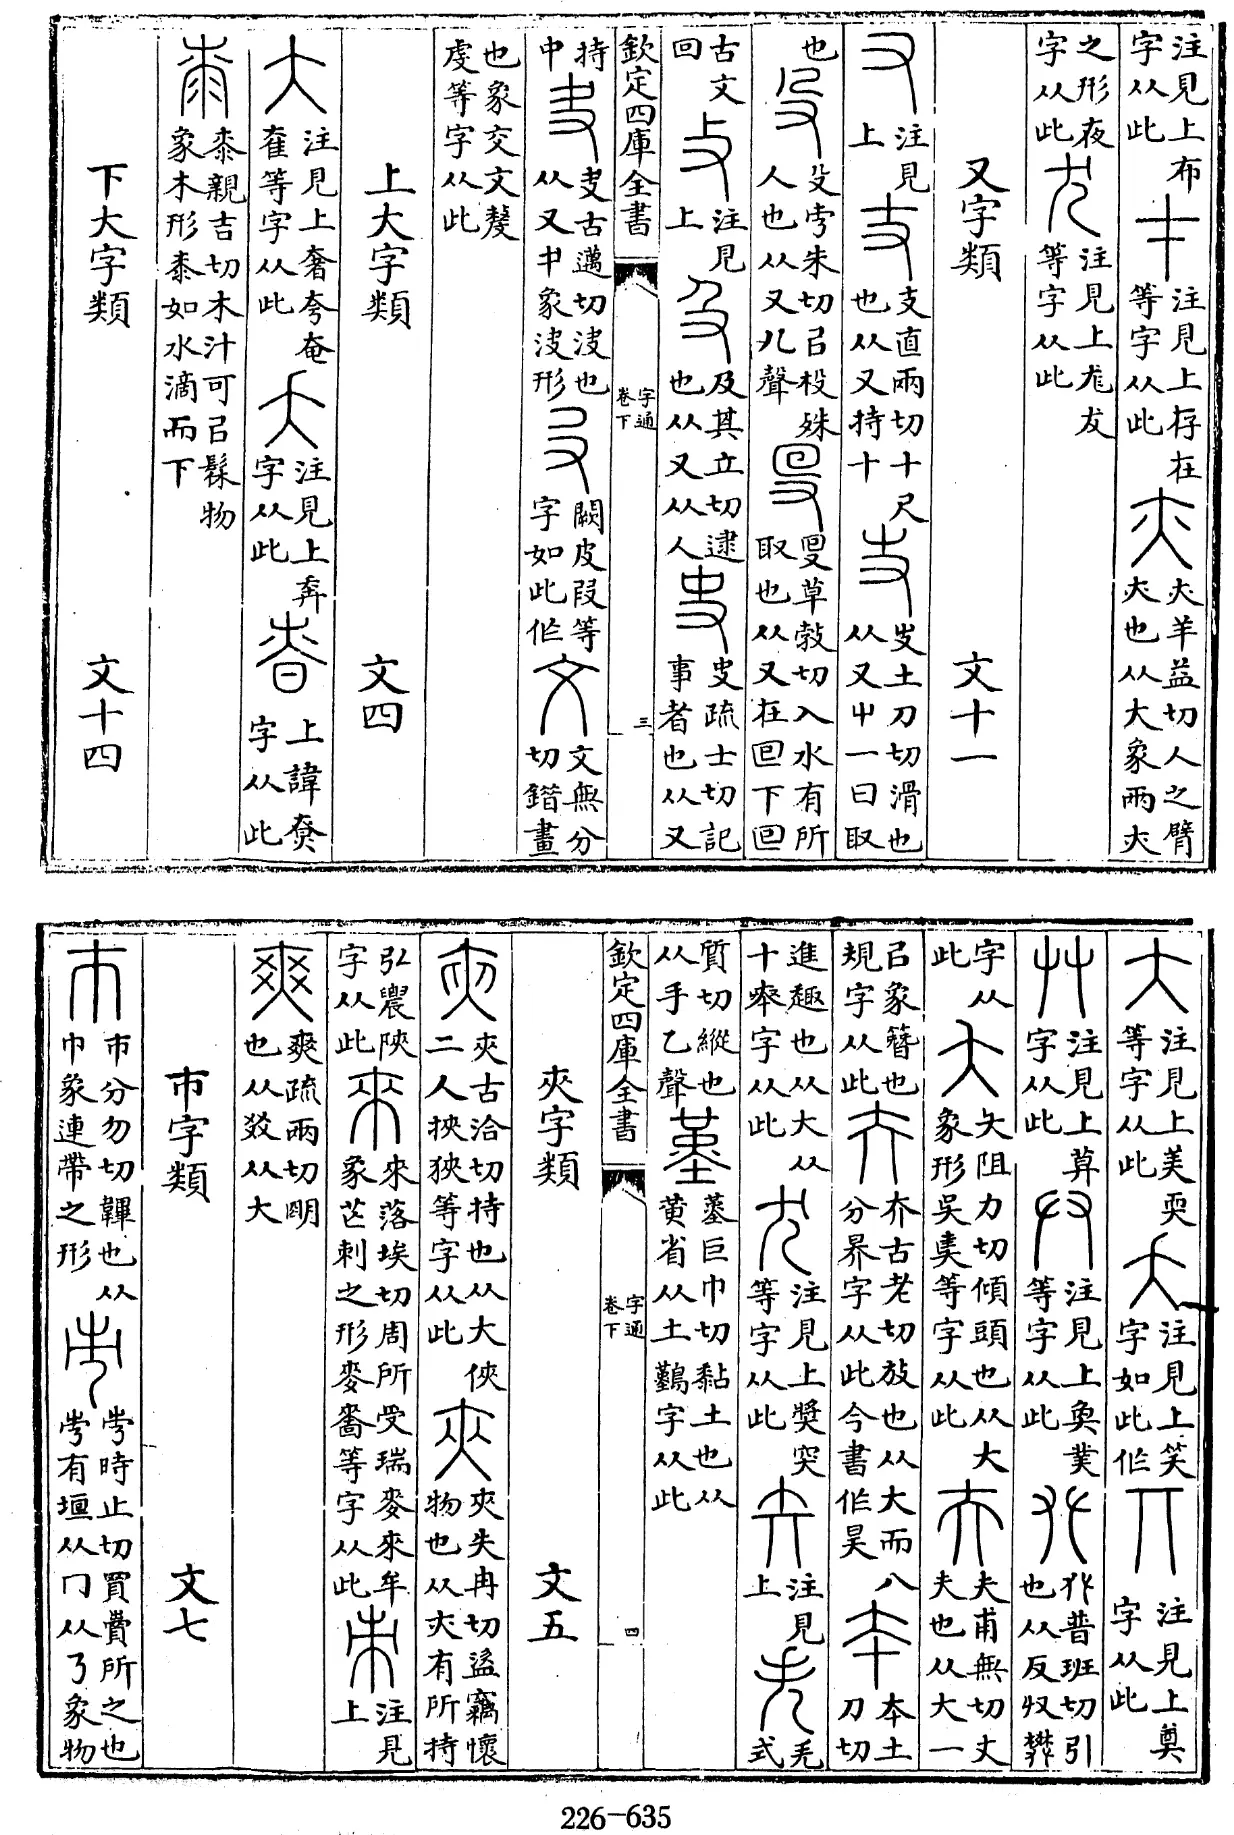 注見上布字从此 注見上存在等字从此 亦 亦羊益切人之臂亦也从大象兩亦
之形夜字从此 注見上尨友等字从此
又字類 文十一
又 注見上 支直兩切十尺也从又持十 𠬢土刀切滑也从又屮一曰取
也 殳 殳市朱切㠯杸殊人也从又几聲 𠬛莫勃切入水有所取也从又在囘下囘
古文回 注見上 及 及其立切逮也从又从人 史 史疏士切記事者也从又
欽定四庫全書 字通卷下 三
持中 叏 叏古邁切決也从又中象決形 闕皮叚等字如此作 文 文無分切錯畫
也象交文嫠虔等字从此
上大字類 文四
大 注見上奢夸奄奞等字从此 大 注見上奔字从此 昚 上諱尞字从此
桼 桼親吉切木汁可㠯髹物象木形桼如水滴而下
下大字類 文十四
大 注見上美耎等字从此 注見上笑字如此作 丌 注見上奠字从此
艸 注見上莫字从此 廾 注見上奐業等字从此 𠬜 𠬜普班切引也从反収樊
字从此 夨 夨阻力切傾頭也从大象形吳奊等字从此 夫 夫甫無切丈夫也从大一
㠯象簪也規字从此 夰 夰古老切放也从大而八分界字从此今書作昊 夲 夲土刀切
進趣也从大从十皋字从此 注見上獎突等字从此 注見上 失 失式
質切縱也从手乙聲 堇 堇巨巾切黏土也从黄省从土鷬字从此
欽定四庫全書 字通卷下 四
夾字類 文五
夾 夾古洽切持也从大俠二人挾狹等字从此 㚒 㚒失冉切盜竊懷物也从亦有所持
弘農陝字从此 來 來落埃切周所受瑞麥來牟象芒刺之形麥嗇等字从此 注見上
爽 爽疏兩切明也从㸚从大
巿字類 文七
巿 巿分勿切韠也从巾象連帶之形 市 市時止切買賣所之也市有垣从冂从㇋象物
226-635